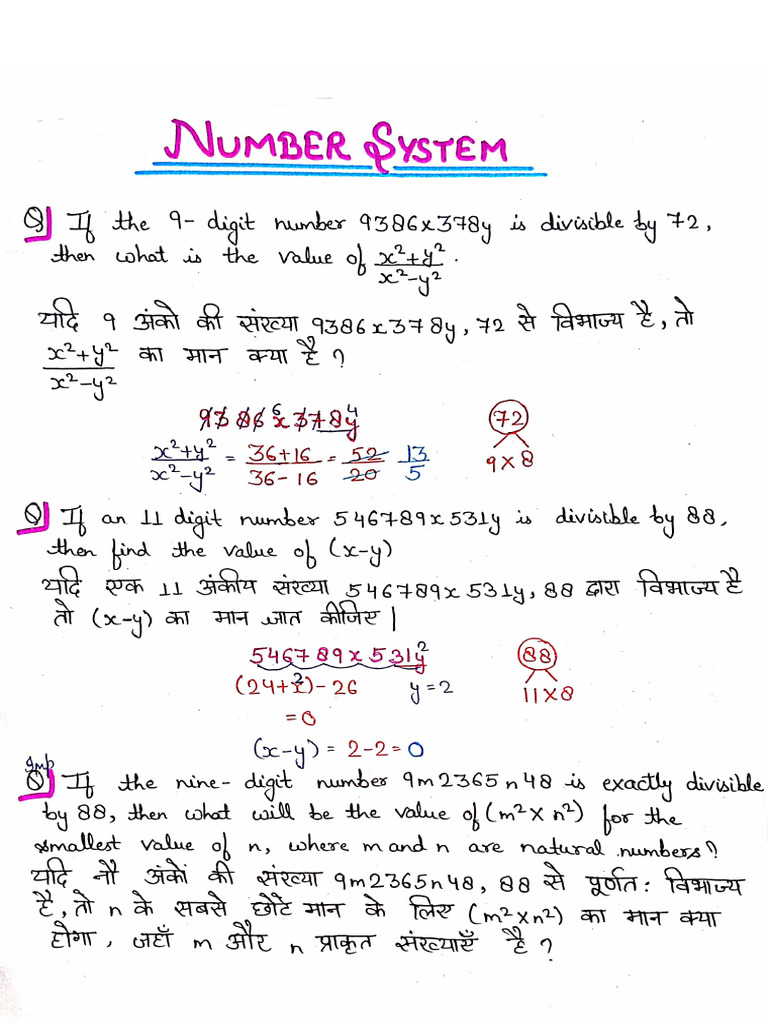 NUMBER SYSTEM
Q) If the 9- digit number 9386x378y is divisible by 72,
then what is the value of x²+y²/x²-y².
यदि 9 अंको की संख्या 9386x378y, 72 से विभाज्य है, तो
x²+y²/x²-y² का मान क्या है ?
9386x⁶378y⁴
72
x²+y²/x²-y² = 36+16/36-16 = 52/20 13/5
9 x 8
Q) If an 11 digit number 546789x531y is divisible by 88,
then find the value of (x-y)
यदि एक 11 अंकीय संख्या 546789x531y, 88 द्वारा विभाज्य है
तो (x-y) का मान ज्ञात कीजिए |
546789x531y²
88
(24+x²)-26 y=2
11 X 8
= 0
(x-y) = 2-2 = 0
Imp
Q) If the nine- digit number 9m2365n48 is exactly divisible
by 88, then what will be the value of (m² x n²) for the
smallest value of n, where m and n are natural numbers?
यदि नौ अंकों की संख्या 9m2365n48, 88 से पूर्णत: विभाज्य
है, तो n के सबसे छोटे मान के लिए (m² x n²) का मान क्या
होगा, जहाँ m और n प्राकृत संख्याएँ है ?